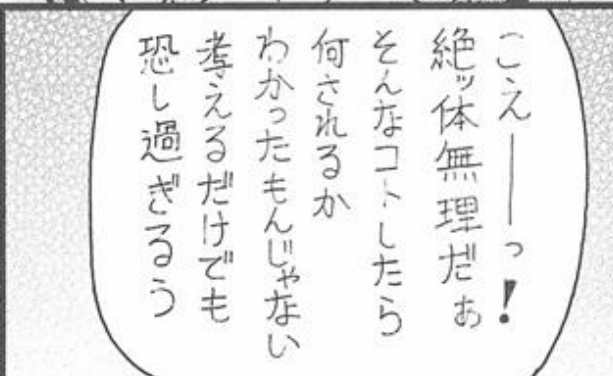 こえ――っ！
絶ッ体無理だぁ
そんなコトしたら
何されるか
わかったもんじゃない
考えるだけでも
恐し過ぎるう